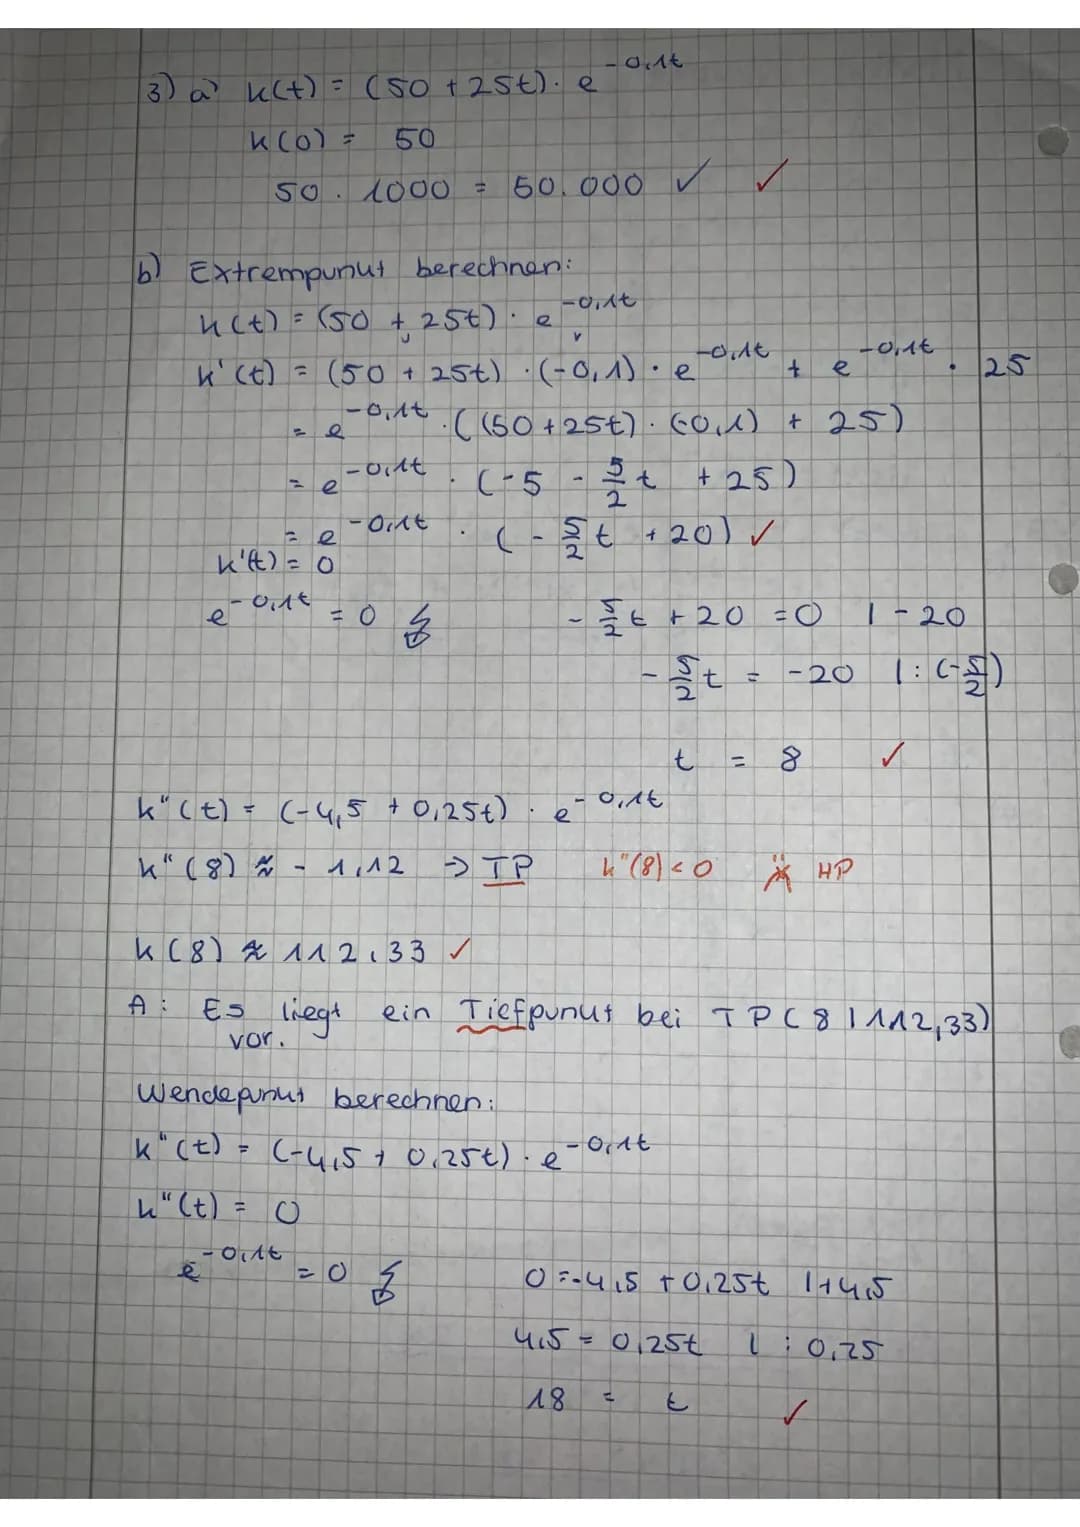 3) a) k(t) = (50 + 25t) · e^-0,1t
k(0) = 50
50 · 1000 = 50.000 ✓ ✓
b) Extrempunkt berechnen:
k(t) = (50 + 25t) · e^-0,1t
k'(t) = (50 + 25t) · (-0,1) · e^-0,1t + e^-0,1t · 25
= e^-0,1t · ((50 + 25t) · (-0,1) + 25)
= e^-0,1t · (-5 - 5/2 t + 25)
= e^-0,1t · (- 5/2 t + 20) ✓
k'(t) = 0
e^-0,1t = 0 ↯ - 5/2 t + 20 = 0 | - 20
- 5/2 t = -20 | : (- 5/2)
t = 8 ✓
k''(t) = (-4,5 + 0,25t) · e^-0,1t
k''(8) ≈ - 1,12 → TP k''(8) < 0 HP
k(8) ≈ 112,33 ✓
A: Es liegt ein Tiefpunkt bei TP(8|112,33)
vor.
Wendepunkt berechnen:
k''(t) = (-4,5 + 0,25t) · e^-0,1t
k''(t) = 0
e^-0,1t = 0 ↯ 0 = -4,5 + 0,25t | +4,5
4,5 = 0,25t | : 0,25
18 = t ✓